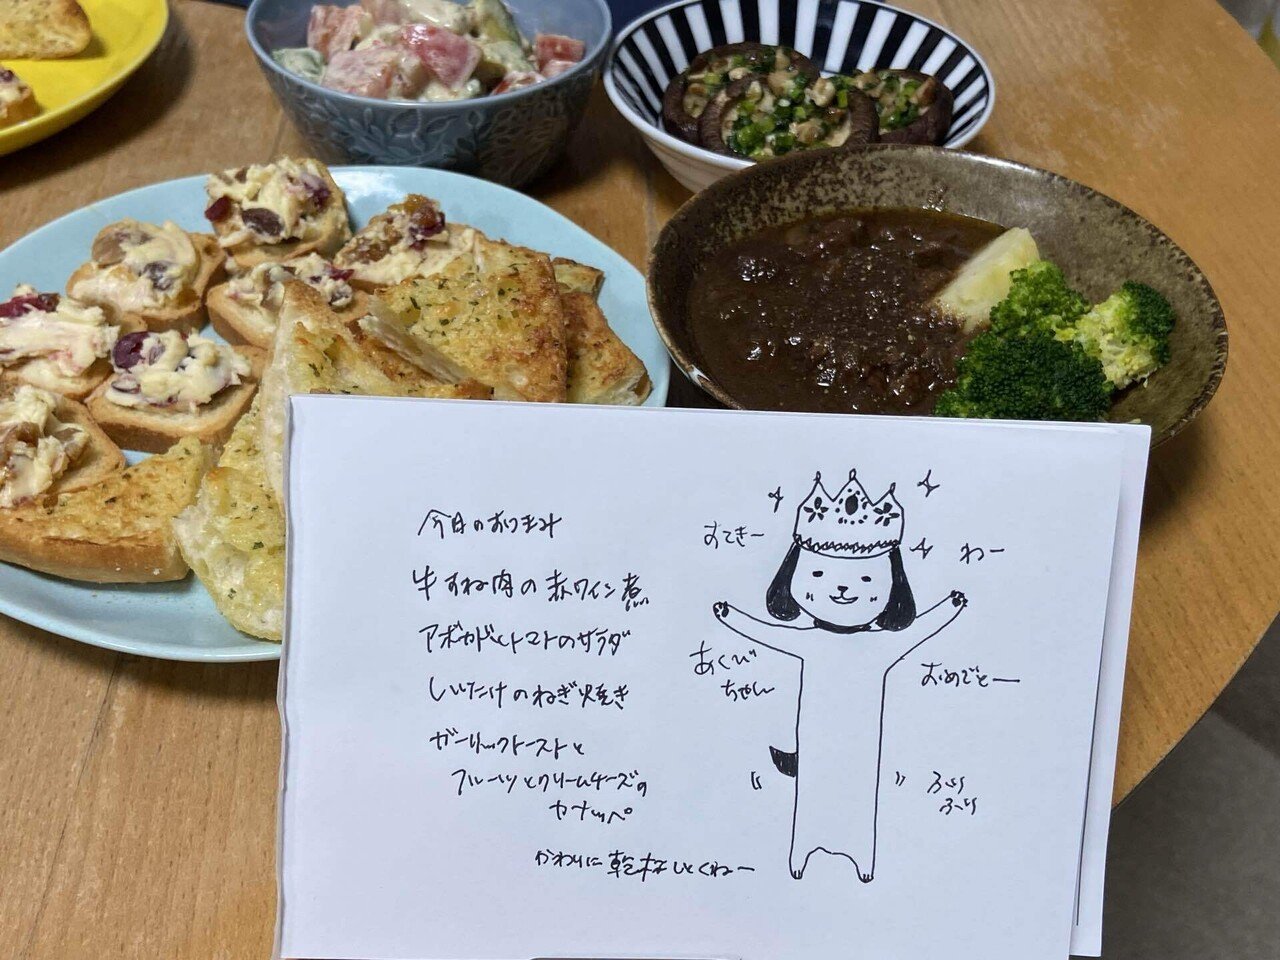 今日のおつまみ
牛すね肉の赤ワイン煮
アボカドとトマトのサラダ
しいたけのねぎ焼き
ガーリックトーストと
フルーツとクリームチーズの
カナッペ
かわりに乾杯しとくねー
すてきー
わー
あくび
ちゃん
おめでとー
ふり
ふり